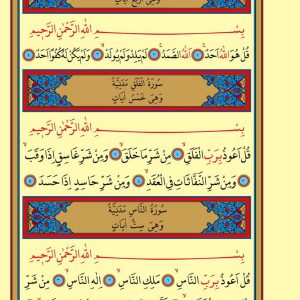 وَهِىَ اَرْبَعُ اٰيَاتٍ
بِسْــــــــمِ اللّٰهِ الرَّحْمٰنِ الرَّحِيمِ
قُلْ هُوَ اللّٰهُ اَحَدٌۚ ١ اَللّٰهُ الصَّمَدُۚ ٢ لَمْ يَلِدْ وَلَمْ يُولَدْۙ ٣ وَلَمْ يَكُنْ لَهُ كُفُوًا اَحَدٌ ٤
سُورَةُ الْفَلَقِ مَدَنِيَّةٌ
وَهِىَ خَمْسُ اٰيَاتٍ
بِسْــــــــمِ اللّٰهِ الرَّحْمٰنِ الرَّحِيمِ
قُلْ اَعُوذُ بِرَبِّ الْفَلَقِۙ ١ مِنْ شَرِّ مَا خَلَقَۙ ٢ وَمِنْ شَرِّ غَاسِقٍ اِذَا وَقَبَۙ
٣ وَمِنْ شَرِّ النَّفَّاثَاتِ فِى الْعُقَدِۙ ٤ وَمِنْ شَرِّ حَاسِدٍ اِذَا حَسَدَ ٥
سُورَةُ النَّاسِ مَدَنِيَّةٌ
وَهِىَ سِتُّ اٰيَاتٍ
بِسْــــــــمِ اللّٰهِ الرَّحْمٰنِ الرَّحِيمِ
قُلْ اَعُوذُ بِرَبِّ النَّاسِۙ ١ مَلِكِ النَّاسِۙ ٢ اِلٰهِ النَّاسِۙ ٣ مِنْ شَرِّ